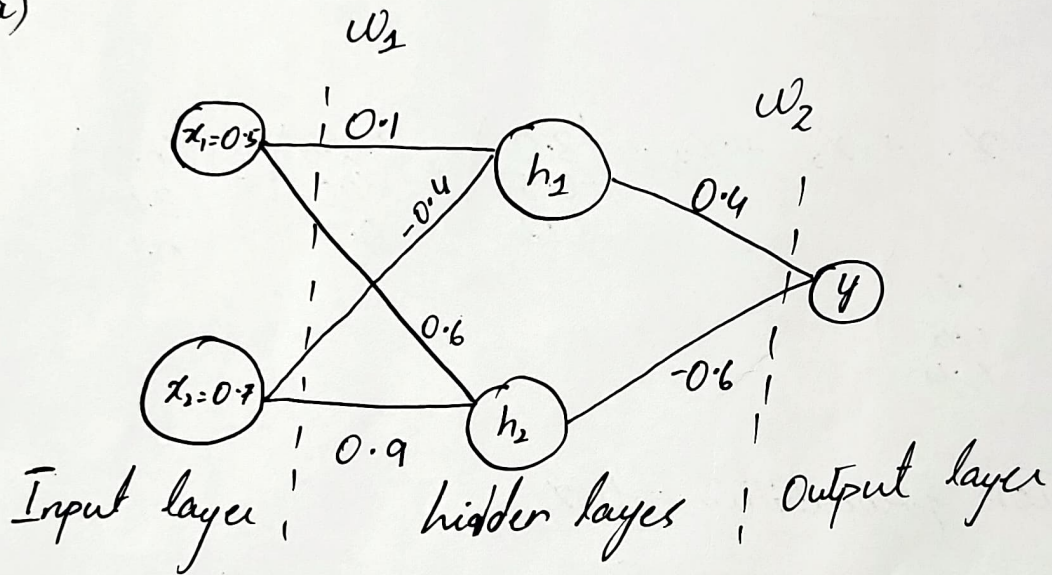 a)
w1
w2
x1=0.5
0.1
h1
-0.4
0.4
y
0.6
x2=0.7
-0.6
h2
0.9
Input layer
hidden layes
Output layer